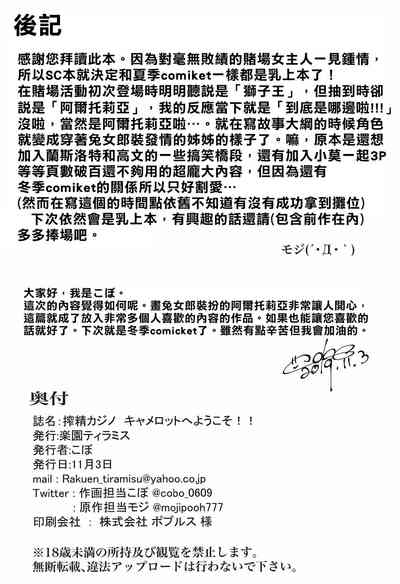 後記
感謝您拜讀此本。因為對毫無敗績的賭場女主人一見鍾情，
所以SC本就決定和夏季comiket一樣都是乳上本了！
在賭場活動初次登場時明明聽說是「獅子王」，但抽到時卻
說是「阿爾托莉亞」，我的反應當下就是「到底是哪邊啦!!!」
沒啦，當然是阿爾托莉亞啦…。就在寫故事大綱的時候角色
就變成穿著兔女郎裝發情的姊姊的樣子了。嘛，原本是還想
加入蘭斯洛特和高文的一些搞笑橋段，還有加入小莫一起3P
等等頁數破百還不夠用的超龐大內容，但因為還有
冬季comiket的關係所以只好割愛…
(然而在寫這個的時間點依舊不知道有沒有成功拿到攤位)
下次依然會是乳上本，有興趣的話還請(包含前作在內)
多多捧場吧。
モジ(´･Д･`)
大家好，我是こぼ。
這次的內容覺得如何呢。畫兔女郎裝扮的阿爾托莉亞非常讓人開心，
這篇就成了放入非常多個人喜歡的內容的作品。如果也能讓您喜歡的
話就好了。下次就是冬季comicket了。雖然有點辛苦但我會加油的。
cobo
2019.11.3
奥付
誌名：搾精カジノ キャメロットへようこそ！！
発行：楽園ティラミス
発行者：こぼ
発行日：11月3日
mail : Rakuen_tiramisu@yahoo.co.jp
Twitter : 作画担当こぼ @cobo_0609
: 原作担当モジ @mojipooh777
印刷会社 ： 株式会社 ポプルス 様
※18歳未満の所持及び観覧を禁止します。
無断転載、違法アップロードは行わないで下さい。